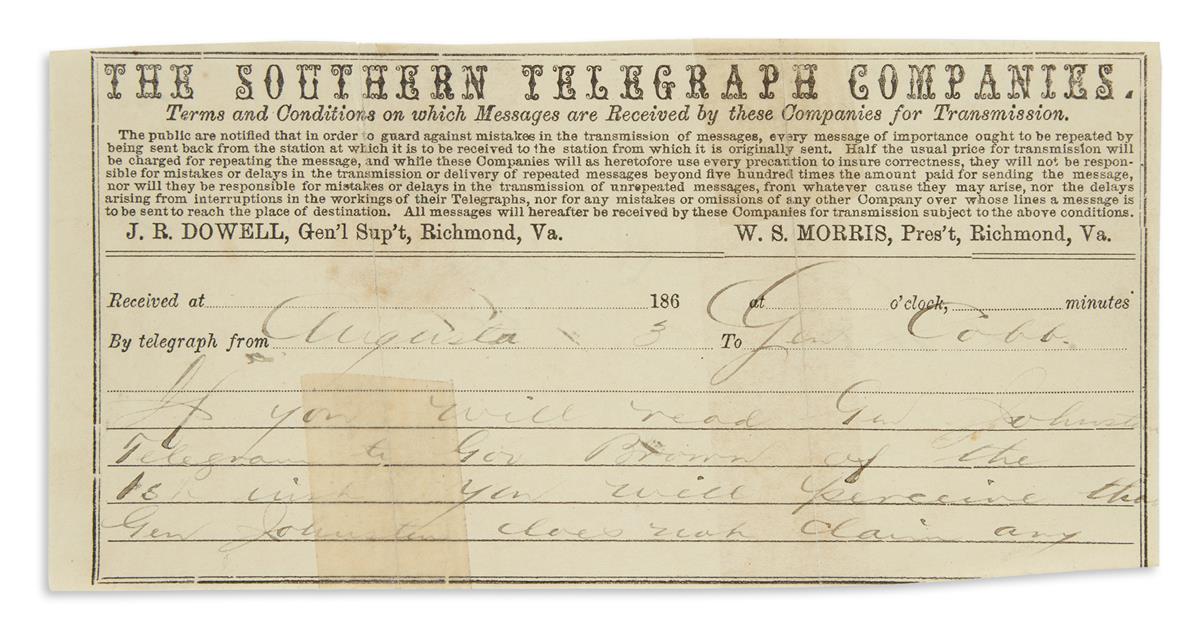 THE SOUTHERN TELEGRAPH COMPANIES.
Terms and Conditions on which Messages are Received by these Companies for Transmission.
The public are notified that in order to guard against mistakes in the transmission of messages, every message of importance ought to be repeated by
being sent back from the station at which it is to be received to the station from which it is originally sent. Half the usual price for transmission will
be charged for repeating the message, and while these Companies will as heretofore use every precaution to insure correctness, they will not be respon-
sible for mistakes or delays in the transmission or delivery of repeated messages beyond five hundred times the amount paid for sending the message,
nor will they be responsible for mistakes or delays in the transmission of unrepeated messages, from whatever cause they may arise, nor the delays
arising from interruptions in the workings of their Telegraphs, nor for any mistakes or omissions of any other Company over whose lines a message is
to be sent to reach the place of destination. All messages will hereafter be received by these Companies for transmission subject to the above conditions.
J. R. DOWELL, Gen'l Sup't, Richmond, Va. W. S. MORRIS, Pres't, Richmond, Va.
Received at 186 at o'clock, minutes
By telegraph from Augusta 3 To Gen Cobb.
If you will read Gen Johnston
Telegram to Gov Brown of the
1st inst you will perceive tha
Gen Johnston does not claim any